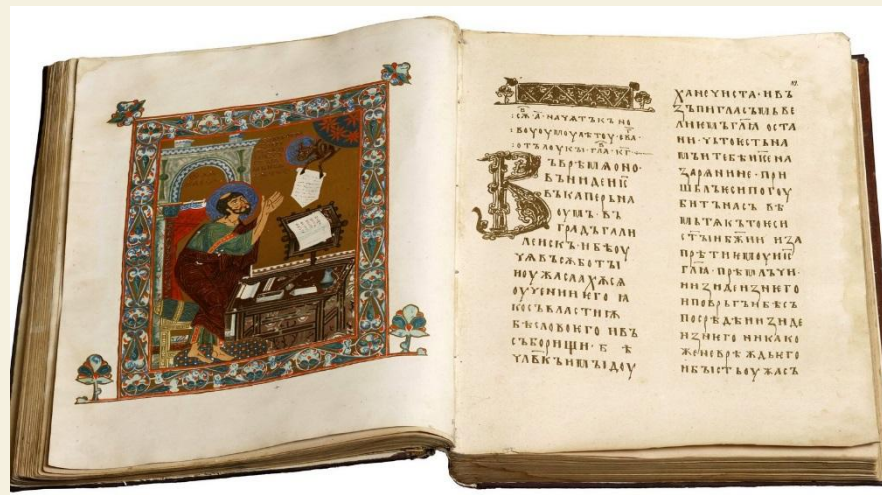 :сѫ҃· а҃· начѧтъкъ но
:воуоумоулѣтоу· еѵа҃·
·отълоукы· гла҃· кг҃
Въврѣмѧоно
въниде іс҃
въкаперьна
оумъ· въ
градъгали
леискъ· ибѣоу
чѧвъсѫботы
иоужасаахѫсѧ
оучениіѥго ꙗ
косъвластиѭ
бѣсловоѥго ивъ
съборищи· б ѣ
чл҃вкъимыидоу
хънечиста· ивъ
зъпигласъмьве
ликъмьгл҃ѧ оста
ни· чьтоѥстьна
мъитебѣіс҃ена
зарѧнине· при
шьлъѥсипогоу
битънасъ вѣ
мьтѧкътоѥси
ст҃ыибж҃ии иза
прѣтиѥмоуіс҃
гл҃ѧ· прѣмлъчи·
иизидиизнѥго
иповрьгъибѣсъ
посрѣдѣиизиде
изнѥго никако
женеврѣждьѥго
ибыстьоужасъ